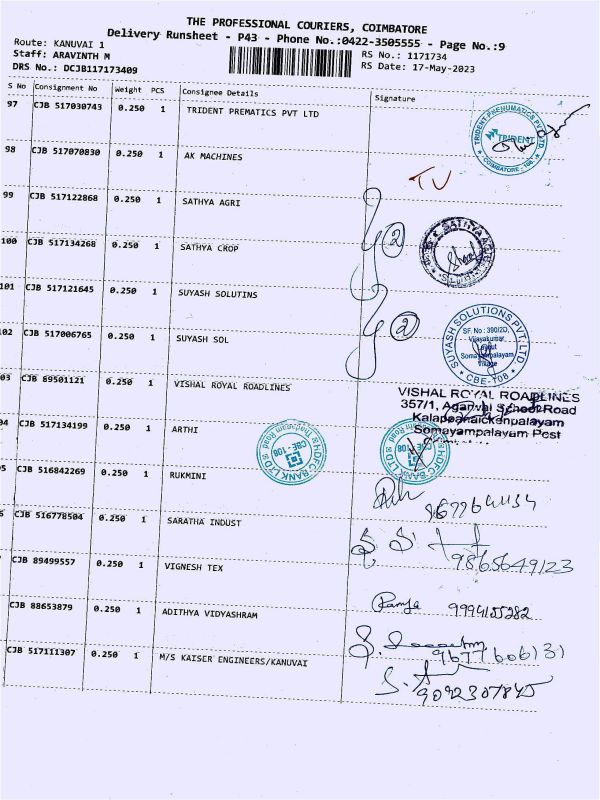 THE PROFESSIONAL COURIERS, COIMBATORE
Delivery Runsheet - P43 - Phone No.:0422-3505555 - Page No.:9
Route: KANUVAI 1
RS No.: 1171734
Staff: ARAVINTH M
RS Date: 17-May-2023
DRS No.: DCJB117173409
S No Consignment No Weight PCS Consignee Details Signature
97 CJB 517030743 0.250 1 TRIDENT PREMATICS PVT LTD
TRIDENT PNEUMATICS PVT LTD
TRIDENT
COIMBATORE - 108
98 CJB 517070830 0.250 1 AK MACHINES
TV
99 CJB 517122868 0.250 1 SATHYA AGRI
100 CJB 517134268 0.250 1 SATHYA CROP
2
101 CJB 517121645 0.250 1 SUYASH SOLUTINS
102 CJB 517006765 0.250 1 SUYASH SOL
2
SUYASH SOLUTIONS PVT. LTD.
SF. No : 390/2D,
Vijayakumar
Somayampalayam
Village
CBE-108
03 CJB 89501121 0.250 1 VISHAL ROYAL ROADLINES
VISHAL ROYAL ROADLINES
357/1, Agarwal School Road
Kalappanaickenpalayam
Somayampalayam Post
04 CJB 517134199 0.250 1 ARTHI
HDFC BANK LTD
CBE-108
HDFC BANK LTD
CBE-108
5 CJB 516842269 0.250 1 RUKMINI
6 CJB 516778504 0.250 1 SARATHA INDUST
9865649123
CJB 89499557 0.250 1 VIGNESH TEX
Ramya 9994155282
CJB 88653879 0.250 1 ADITHYA VIDYASHRAM
9677606131
CJB 517111307 0.250 1 M/S KAISER ENGINEERS/KANUVAI
9092307845